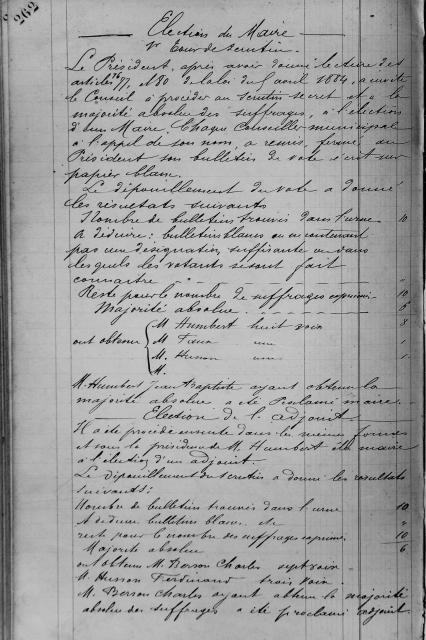 262
Election du Maire
1r Tour de scrutin.
Le Président, après avoir donné lecture des
articles 76 77, et 80 de la loi du 5 avril 1884, a invité
le Conseil à procéder au scrutin secret et à la
majorité absolue des suffrages, à l'élection
d'un Maire. Chaque Conseiller municipal
à l'appel de son nom, a remis, fermé au
Président son bulletin de vote écrit sur
papier blanc.
Le dépouillement du vote a donné
les résultats suivants
Nombre de bulletins trouvés dans l'urne 10
A déduire: bulletins blancs ou ne contenant
pas une désignation suffisante ou dans
lesquels les votants se sont fait
connaitre "
Reste pour le nombre de suffrages exprimés 10
Majorité absolue 6
M Humbert huit voix 8
ont obtenu M une 1
M. Husson une 1
M.
M. Humbert Jean Baptiste ayant obtenu la
majorité absolue a été Proclamé maire.
Election de l'adjoint
Il a été procédé ensuite dans les mêmes formes
et sous la présidence de M. Humbert élu maire
à l'élection d'un adjoint.
Le Dépouillement du scrutin a donné les resultats
suivants:
Nombre de bulletins trouvés dans l'urne 10
A deduire bulletins blancs. etc "
rest pour le nombre des suffrages exprimés 10
Majorité absolue 6
ont obtenu M. Berson Charles sept voix
M. Husson Ferdinand trois voix.
M. Berson Charles ayant obtenu la majorité
absolue des suffrages a été proclamé adjoint.